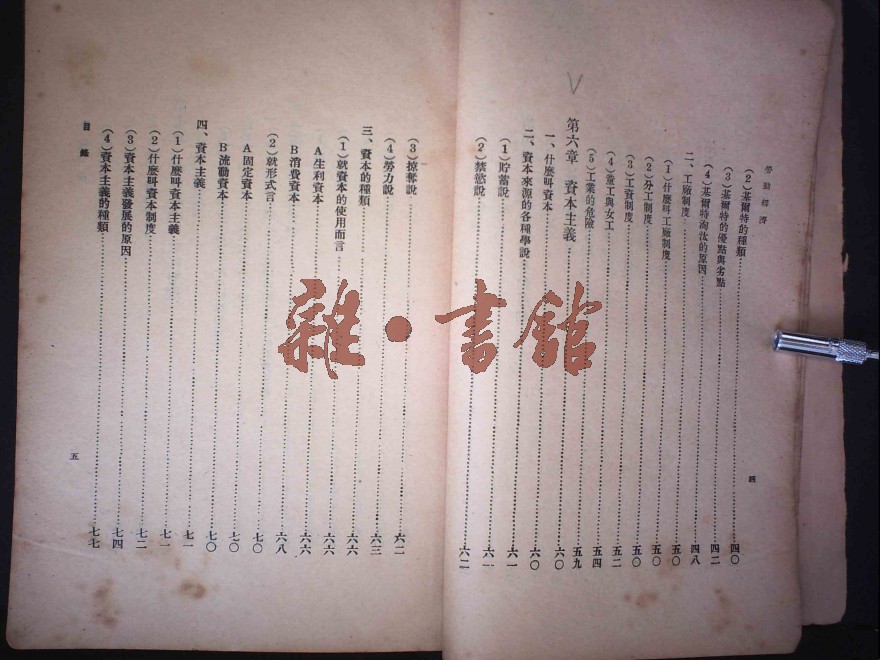 勞動經濟
(2)基爾特的種類……四〇
(3)基爾特的優點與劣點……四二
(4)基爾特淘汰的原因……四八
二、工廠制度……五〇
(1)什麼叫工廠制度……五〇
(2)分工制度……五〇
(3)工資制度……五二
(4)童工與女工……五四
(5)工業的危險……五九
第六章 資本主義……六〇
一、什麼叫資本……六〇
二、資本來源的各種學說……六一
(1)貯蓄說……六一
(2)禁慾說……六二
四
(3)掠奪說……六二
(4)勞力說……六三
三、資本的種類……六六
(1)就資本的使用而言……六六
A生利資本……六六
B消費資本……六八
(2)就形式言……七〇
A固定資本……七〇
B流動資本……七〇
四、資本主義……七一
(1)什麼叫資本主義……七一
(2)什麼叫資本制度……七二
(3)資本主義發展的原因……七四
(4)資本主義的種類……七七
目錄
五
雜·書館